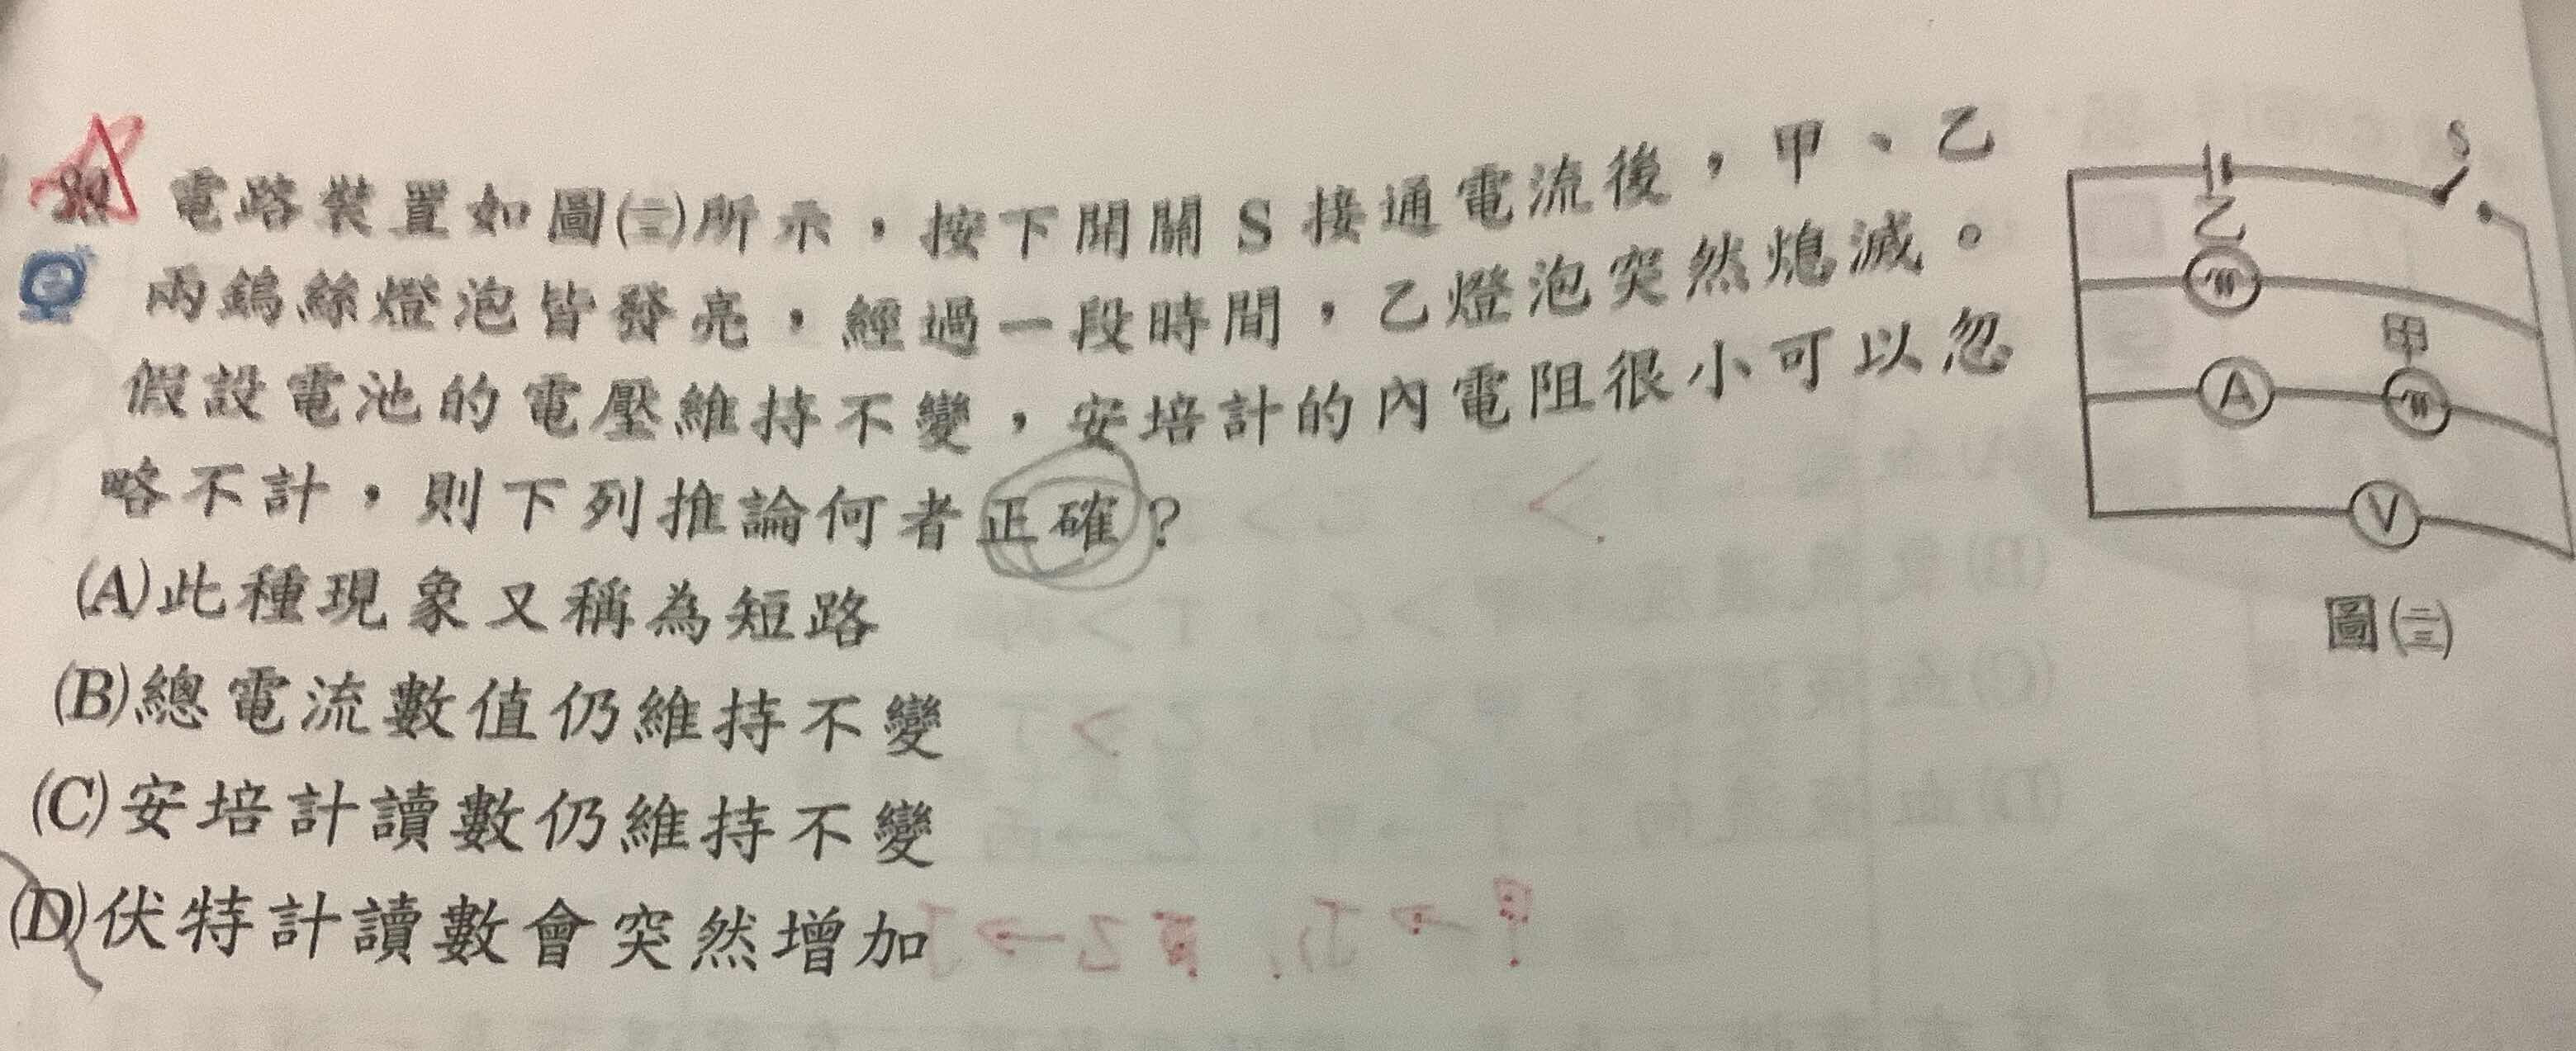 電路裝置如圖(三)所示，按下開關 S 接通電流後，甲、乙
兩鎢絲燈泡皆發亮，經過一段時間，乙燈泡突然熄滅。
假設電池的電壓維持不變，安培計的內電阻很小可以忽
略不計，則下列推論何者正確？
(A)此種現象又稱為短路
(B)總電流數值仍維持不變
(C)安培計讀數仍維持不變
(D)伏特計讀數會突然增加
S
乙
甲
A
V